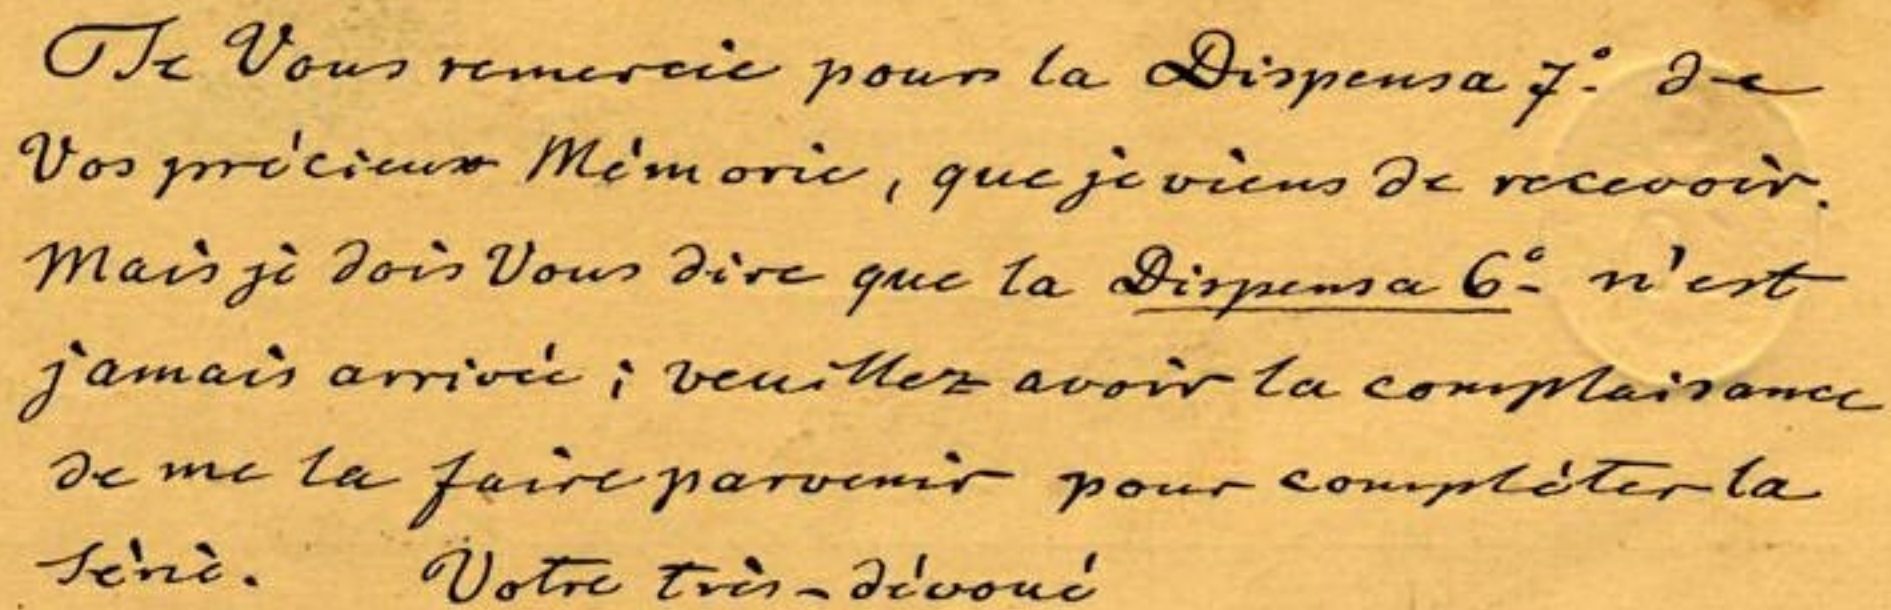 Je Vous remercie pour la Dispensa 7.° de
Vos précieux Mémorie, que je viens de recevoir.
Mais je dois Vous dire que la Dispensa 6.° n'est
jamais arrivée; veuillez avoir la complaisance
de me la faire parvenir pour compléter la
série. Votre très-dévoué